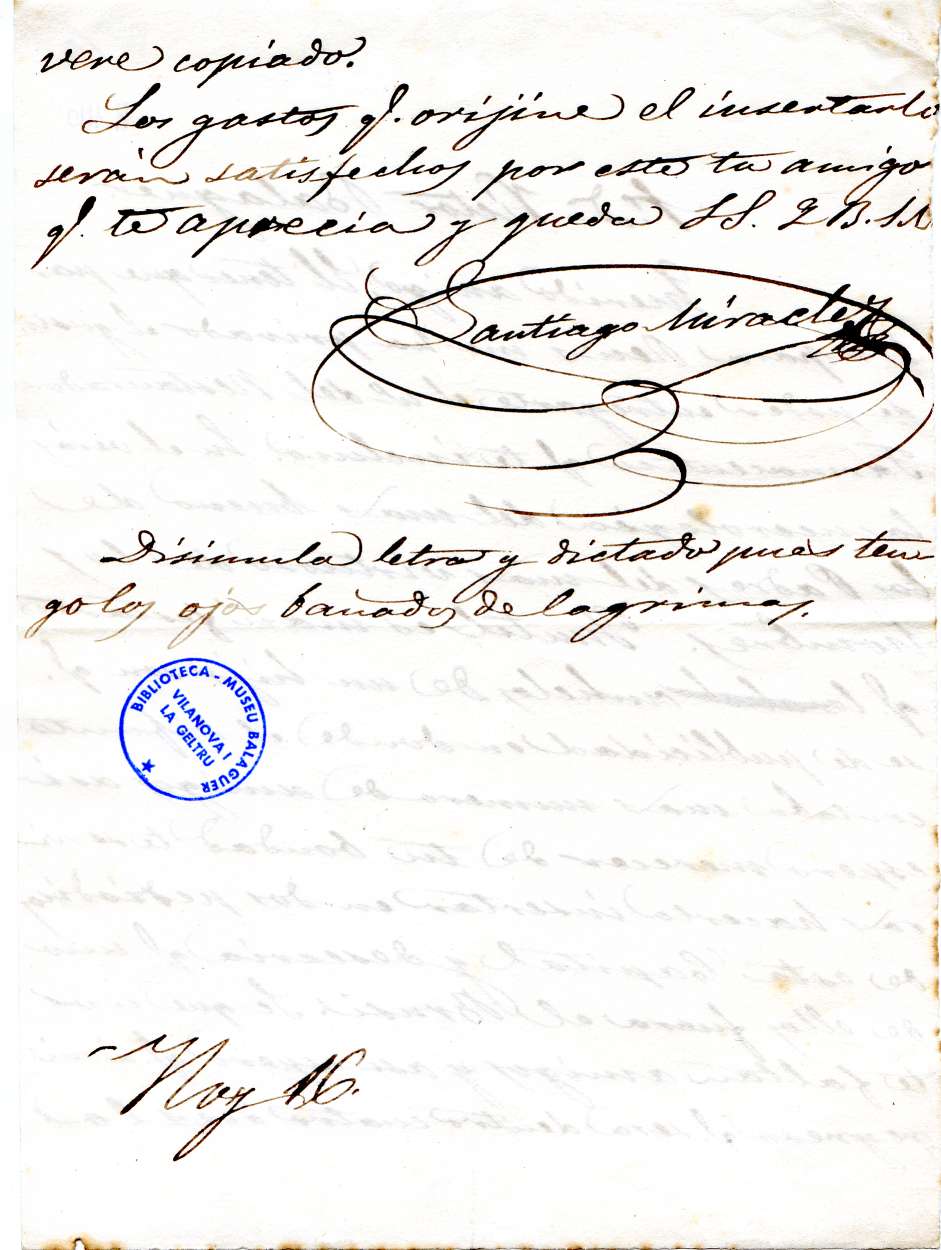 vere copiado.
Los gastos q. orijine el insertarlo
serán satisfechos por este tu amigo
q. te aprecia y queda S.S. Q B. S.M.
Santiago Miracle
Disimula letra y dictado pues ten
go los ojos bañados de lagrimas.
BIBLIOTECA - MUSEU BALAGUER
VILANOVA I
LA GELTRU
Noy